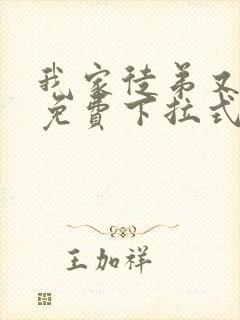 我家徒弟又
免費下拉式
王加祥